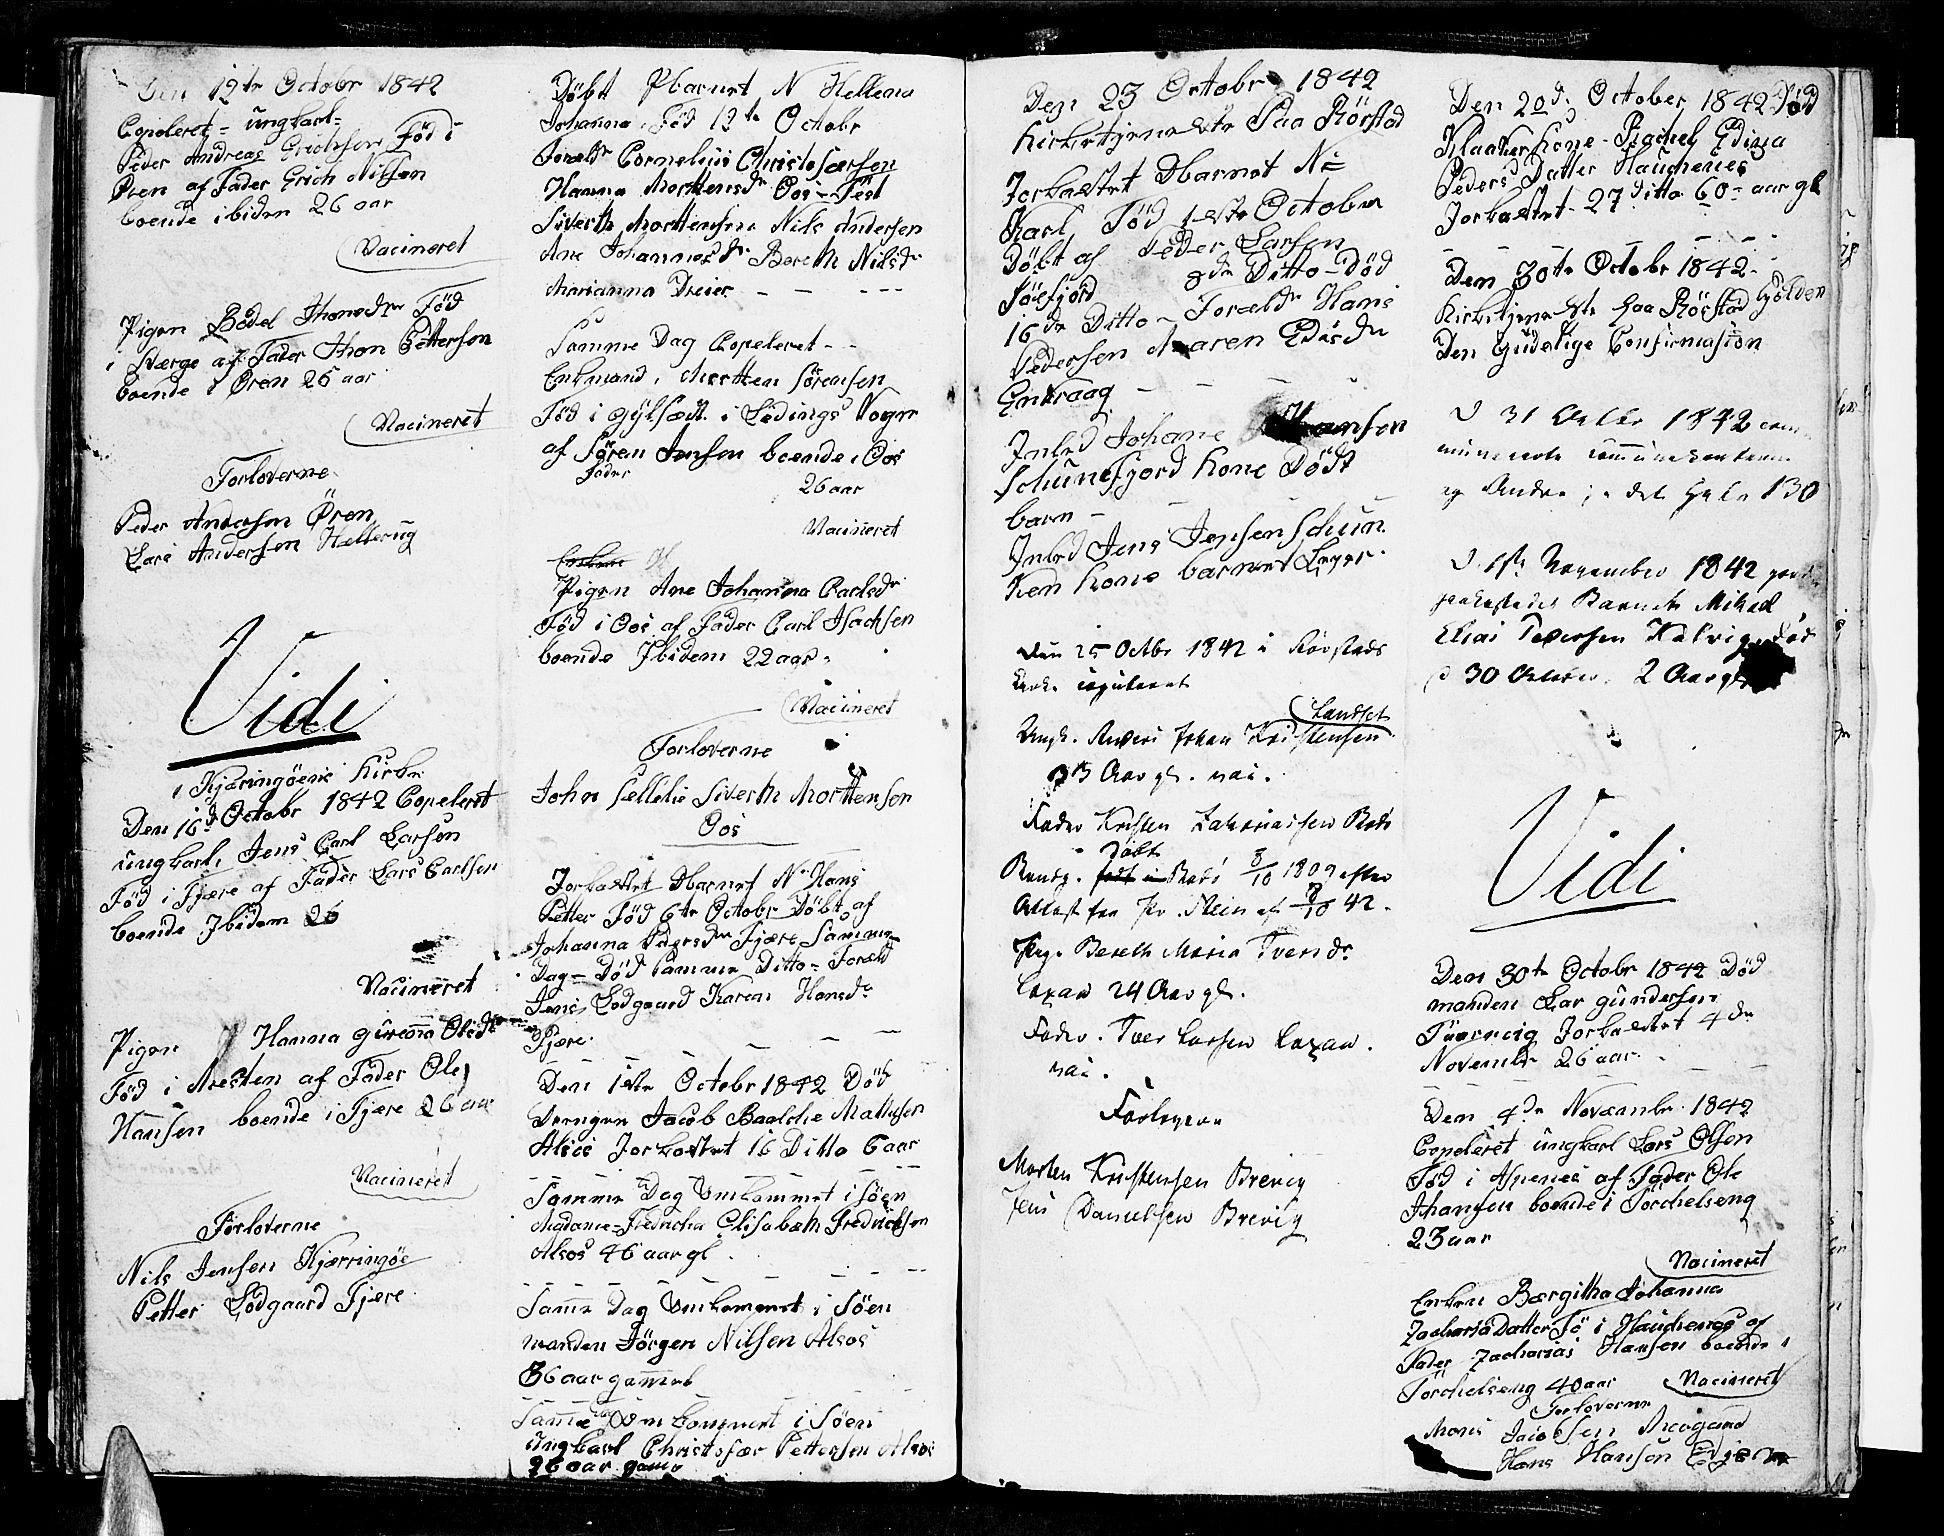 Den 12te Octobr 1842
Copoleret = ungkarl =
Peder Andreas Erichsen Föd i
Ören af Fader Erich Nilsen
boende ibidem 26 aar
Vacineret
Pigen Bodel Thonedr Föd
i Sværge af Fader Thon Pettersen
boende i Ören 25 aar
Vacineret
Forloverne
Peder Andersen Ören
Lars Andersen Hellerug
Vidi
i Kjæringöens Kirke
Den 16d Octobr 1842 Copeleret
ungkarl, Jens Carl Larsen
Föd i Fjære af Fader Lars Carlsen
boende Jbidem 26
Vacineret
Pigen Hanna Oledr
Föd i af Fader Ole
Hansen boende i Fjære 26 aar
Vacineret
Forloverne
Nils Jensen Kjærringöe
Petter Lodgaard Fjære
Döbt Barnet N Hellena
Johanna, Föd 12te Octobr
Foreldr Cornelius Christofærsen
Hanna Morttensdr Oos = Fest
Siverth Morttensen Nils Andersen
Ane Johannesdr Bereth Nilsdr
Marianna Dreier - - - - -
Samme Dag Copeleret - -
Enkmand, Mortten Sörensen
Föd i Gylset i Ledings Sogn
af Sören Jensen boende i Oos
Fader
26 aar
Vacineret
Pigen Ane Johanna Carlsdr
Föd i Oos af Fader Carl Isachsen
boende Jbidem 22 aar
Vacineret
Forloverne
John Sellelie Siverth Morttensen
Oos
Jorkastet Barnet N. Hans
Petter Föd 6te Octobr Döbt af
Johanna Pedersdr Fjære Samme
Dag = Död Samme Ditto = Foreld
Jens Lodgaard Karen Hansdr
Fjære
Den 1ste Octobr 1842 Död
Drengen Jacob Baalche Mathisen
Alsos Jorkastet 16 Ditto 6 aar
Samme Dag Omkommet i Söen
Madame = Fredricha Elisabeth Fredrichsen
Alsos 46 aar gl.
Samme Dag Omkommet i Söen
manden Jörgen Nilsen Alsos
36 aar gammel
Samme Dag Omkommet i Söen
ungkarl Christofær Pettersen Alsos
26 aar gaml
Den 23 Octobr 1842
Kirketjeneste Paa Rörstad
Jorkastet Barnet N=
Karl, Föd 1ste October
Döbt af Peder Larsen
Sörfjord 8de Ditto - Död
16de Ditto - Foreldr Hans
Pedersen Maren Edisdr
Enkraag
Inled Johane Hansen
fjord Kone Dödt
barn
Inled Jens Jensen Schun
Ken Kone barnet Leger
Den 25 Octbr 1842 i Rörstads
Kirke copuleret
Landset
Ungk. Anders Johan Kristensen
33 Aar gl. vac.
Fader Kristen Zakariassen Bodö
Döbt
Bondg. födt i Bodö 3/10 1809 efter
Attest fra Pr. Stein af 8/10 42.
Pige Bereth Maria Iversdr
Laxaa 24 Aar gl.
Fader Iver Larsen Laxaa.
vac.
Forlovere
Morten Kristensen Brevig
Jens Danielsen Brevig
Den 20d October 1842 Död
Klaaker Kone - Rachel Edissa
Peders Datter Haughenes
Jorkastet 27d ditto 60 = aar gl
Den 30te Octobr 1842
Kirketjeneste paa Rörstad Holden
Den Gudelige Confirmasion
D 31 Octbr 1842 com-
municerte
og Andre i det hele 130
D. 1ste November 1842
Barnet Mikael
Elias Pedersen Kalvig, död
d 30 October, 2 Aar gl
Vidi
Den 30te Octobr 1842 Död
manden Lar Gundersen
Tverrvig Jorkastet 4de
Novembr 26 aar
Den 4de Novembr 1842
Copeleret ungkarl Lars Olsen
Föd i Aspenes af Fader Ole
Jhansen boende i Torchelseng
23 aar
Vacineret
Enken Bærgitha Johanna
Zacharia Datter Fö i Hauchenes af
Fader Zacharias Hansen boende i
Torchelseng 40 aar Vacineret
Forloverne
Mons Jacobsen
Hans Hansen